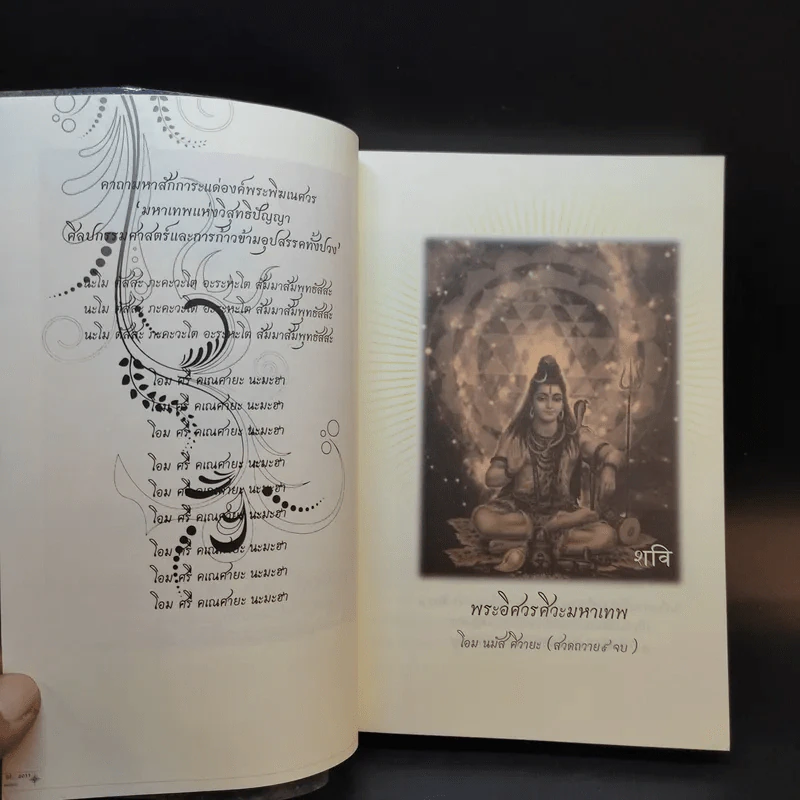 คาถามหาสักการะแด่องค์พระพิฆเนศวร
'มหาเทพแห่งวิสุทธิปัญญา
ศิลปกรรมศาสตร์และการก้าวข้ามอุปสรรคทั้งปวง'
นะโม ตัสสะ ภะคะวะโต อะระหะโต สัมมาสัมพุทธัสสะ
นะโม ตัสสะ ภะคะวะโต อะระหะโต สัมมาสัมพุทธัสสะ
นะโม ตัสสะ ภะคะวะโต อะระหะโต สัมมาสัมพุทธัสสะ
โอม ศรี คเณศายะ นะมะฮา
โอม ศรี คเณศายะ นะมะฮา
โอม ศรี คเณศายะ นะมะฮา
โอม ศรี คเณศายะ นะมะฮา
โอม ศรี คเณศายะ นะมะฮา
โอม ศรี คเณศายะ นะมะฮา
โอม ศรี คเณศายะ นะมะฮา
โอม ศรี คเณศายะ นะมะฮา
โอม ศรี คเณศายะ นะมะฮา
शवि
พระอิศวรศิวะมหาเทพ
โอม นมัส ศิวายะ (สวดถวาย ๙ จบ)